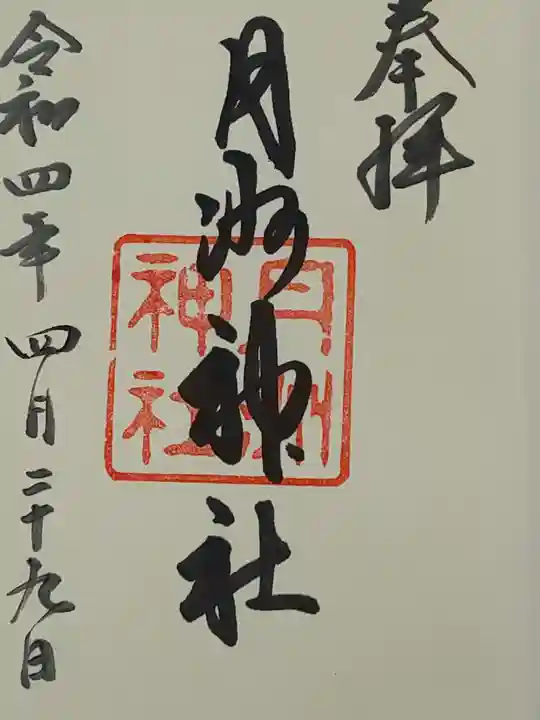 奉拝
月洲神社
月洲
神社
令和四年四月二十九日